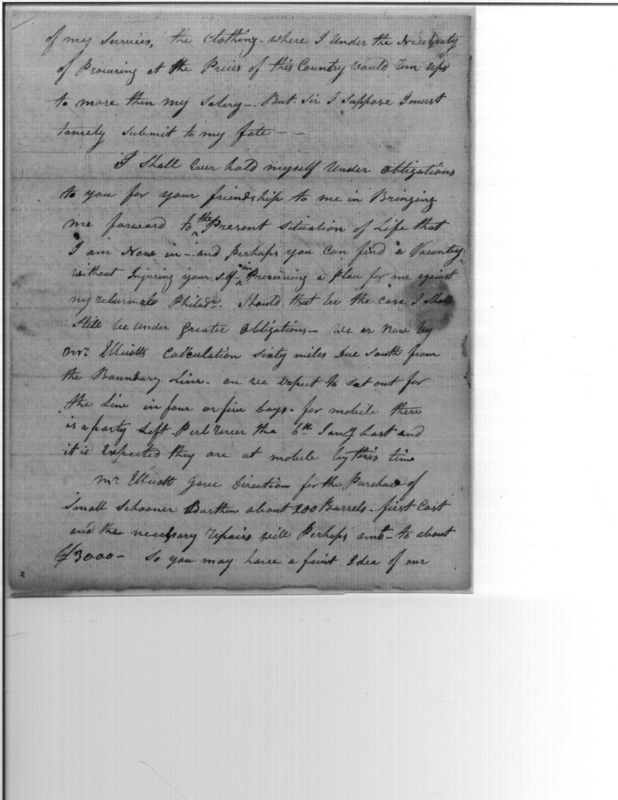 of my Services, the Clothing - where I under the Necessaty
of Procuring at the Prices of this Country would Run upd
to more then my Salery - But Sir I Suppose I must
tamely submit to my fate - -
I Shall Ever hold myself under obligations
to you for your friendship to me in Bringing
me forward to the Present Situation of Life that
I am Now in - and perhaps you can find a Vacentcy
without Injuring your self in Procureing a Place for me against
my return to Philada. Should that be the case I shall
Still be under greater Obligations - we ar now by
Mr. Ellicotts Calculation Sixty miles Due South from
the Boundary Line - an we Expect to sat out for
the Line in four or five Days - for mobile there
is a party Left the 6th Jany Last and
it is Expected they are at mobile by this time
Mr. Ellicott gave Direction for the Purchase of
Small Schooner Burthen about 200 Barrels - first Cost
and the necessary repairs will Perhaps amt. to about
$3000 - So you may have a faint Idea of our